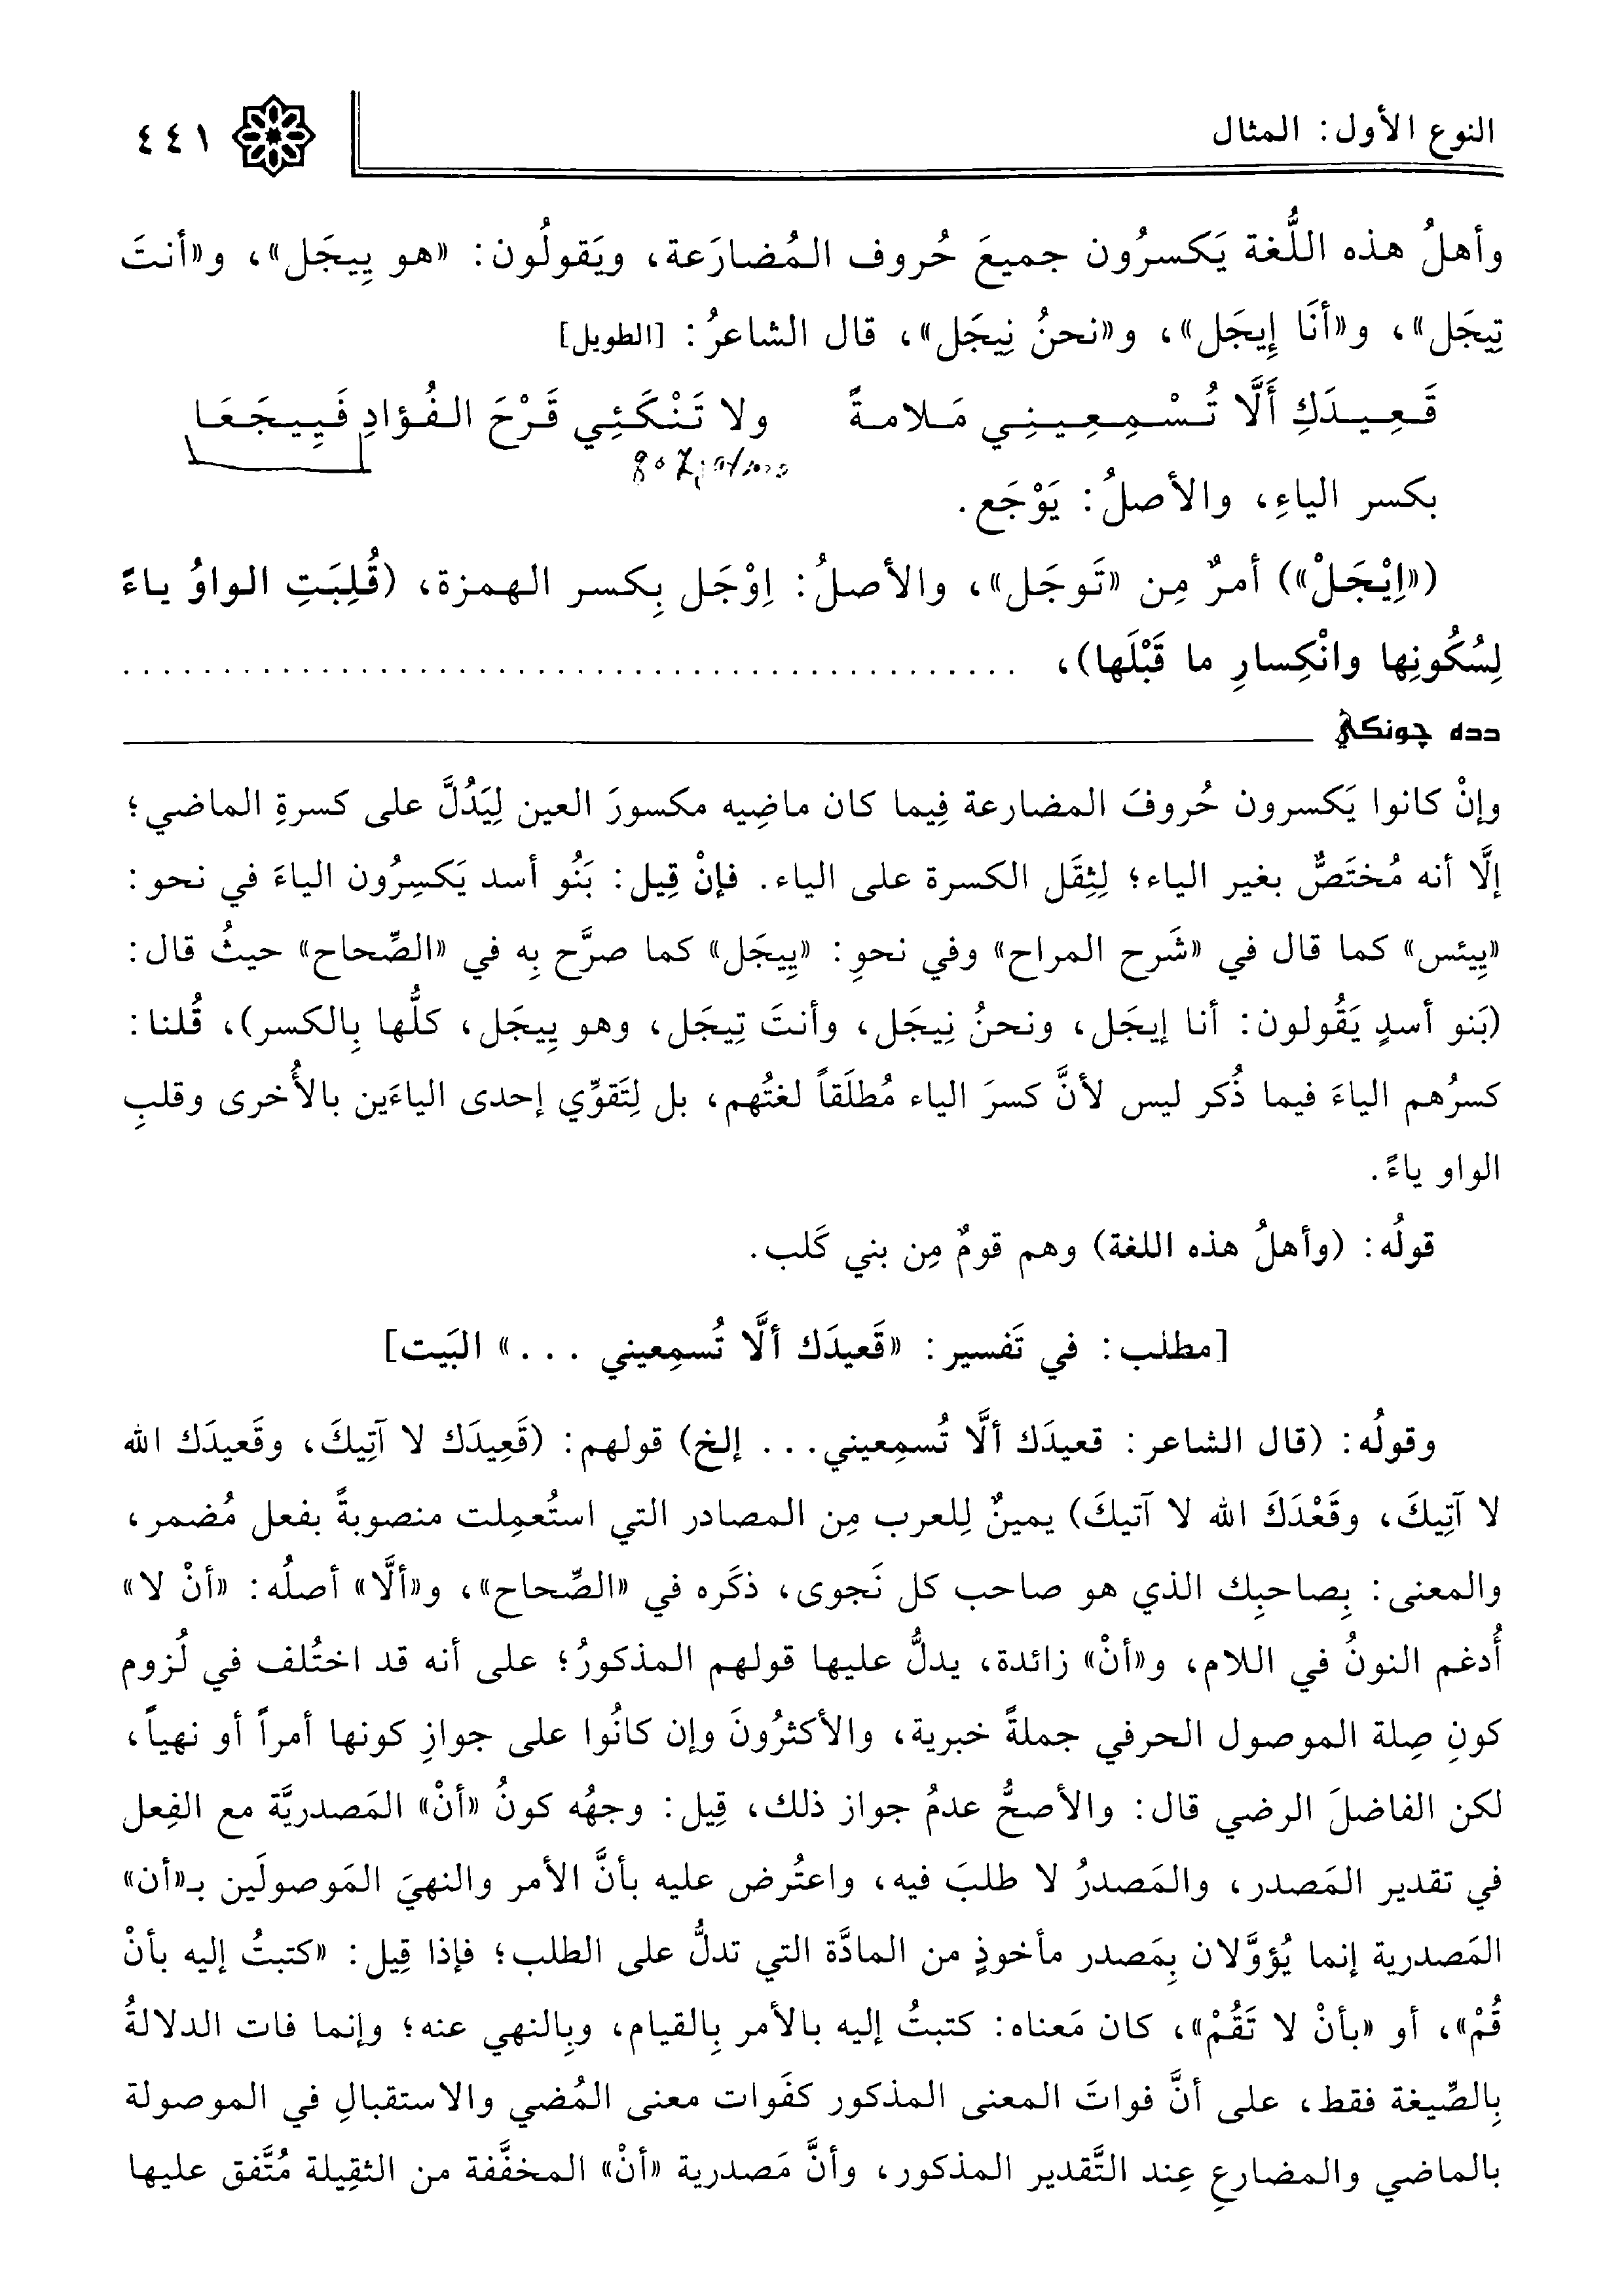 النوع الأول: المثال
٤٤١
وأهلُ هذه اللُّغة يَكسرُون جميعَ حُروف المُضارَعة، ويَقولُون: «هو يِيجَل»، و«أنتَ
تِيجَل»، و«أنَا إِيجَل»، و«نحنُ نِيجَل»، قال الشاعرُ: [الطويل]
قَعِيدَكِ أَلَّا تُسْمِعِينِي مَلامةً ولا تَنْكَئِي قَرْحَ الفُؤادِ فَيِيجَعَا
بكسر الياءِ، والأصلُ: يَوْجَع.
(«اِيْجَلْ») أمرٌ مِن «تَوجَل»، والأصلُ: اِوْجَل بِكسر الهمزة، (قُلِبَتِ الواوُ ياءً
لِسُكُونِها وانْكِسارِ ما قَبْلَها)، ..............................................
دده جونكي
وإنْ كانوا يَكسرون حُروفَ المضارعة فِيما كان ماضِيه مكسورَ العين لِيَدُلَّ على كسرةِ الماضي؛
إلَّا أنه مُختَصٌّ بغير الياء؛ لِثِقَل الكسرة على الياء. فإنْ قِيل: بَنُو أسد يَكسِرُون الياءَ في نحو:
«يِيئس» كما قال في «شَرح المراح» وفي نحوِ: «يِيجَل» كما صرَّح بِه في «الصِّحاح» حيثُ قال:
(بَنو أسدٍ يَقُولون: أنا إيجَل، ونحنُ نِيجَل، وأنتَ تِيجَل، وهو يِيجَل، كلُّها بِالكسر)، قُلنا:
كسرُهم الياءَ فيما ذُكر ليس لأنَّ كسرَ الياء مُطلَقاً لغتُهم، بل لِتَقوِّي إحدى الياءَين بالأُخرى وقلبِ
الواو ياءً.
قولُه: (وأهلُ هذه اللغة) وهم قومٌ مِن بني كَلب.
[مطلب: في تَفسير: «قَعيدَك ألَّا تُسمِعيني ...» البَيت]
وقولُه: (قال الشاعر: قعيدَك ألَّا تُسمِعيني... إلخ) قولهم: (قَعِيدَك لا آتِيكَ، وقَعيدَك الله
لا آتِيكَ، وقَعْدَكَ الله لا آتيكَ) يمينٌ لِلعرب مِن المصادر التي استُعمِلت منصوبةً بفعل مُضمر،
والمعنى: بِصاحبِك الذي هو صاحب كل نَجوى، ذكَره في «الصِّحاح»، و«ألَّا» أصلُه: «أنْ لا»
أُدغم النونُ في اللام، و«أنْ» زائدة، يدلُّ عليها قولهم المذكورُ؛ على أنه قد اختُلف في لُزوم
كونِ صِلة الموصول الحرفي جملةً خبرية، والأكثرُونَ وإن كانُوا على جوازِ كونها أمراً أو نهياً،
لكن الفاضلَ الرضي قال: والأصحُّ عدمُ جواز ذلك، قِيل: وجهُه كونُ «أنْ» المَصدريَّة مع الفِعل
في تقدير المَصدر، والمَصدرُ لا طلبَ فيه، واعتُرض عليه بأنَّ الأمر والنهيَ المَوصولَين بـ«أن»
المَصدرية إنما يُؤوَّلان بِمَصدر مأخوذٍ من المادَّة التي تدلُّ على الطلب؛ فإذا قِيل: «كتبتُ إليه بأنْ
قُمْ»، أو «بأنْ لا تَقُمْ»، كان مَعناه: كتبتُ إليه بالأمر بِالقيام، وبِالنهي عنه؛ وإنما فات الدلالةُ
بِالصِّيغة فقط، على أنَّ فواتَ المعنى المذكور كفَوات معنى المُضي والاستقبالِ في الموصولة
بالماضي والمضارعِ عِند التَّقدير المذكور، وأنَّ مَصدرية «أنْ» المخفَّفة من الثقِيلة مُتَّفق عليها